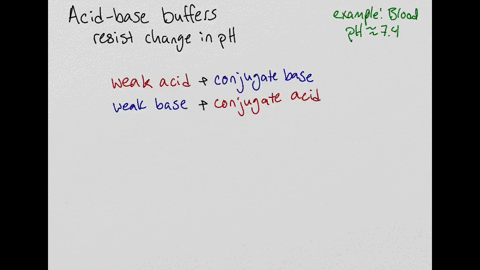 Acid-base buffers
resist change in pH
example: Blood
pH ≈ 7.4
weak acid + conjugate base
weak base + conjugate acid